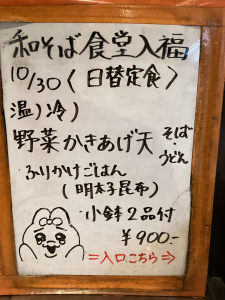 和そば食堂入福
10/30〈日替定食〉
温)冷)
野菜かきあげ天 そば・うどん
ふりかけごはん
(明太子昆布)
小鉢2品付
¥900.-
=入口こちら⇒